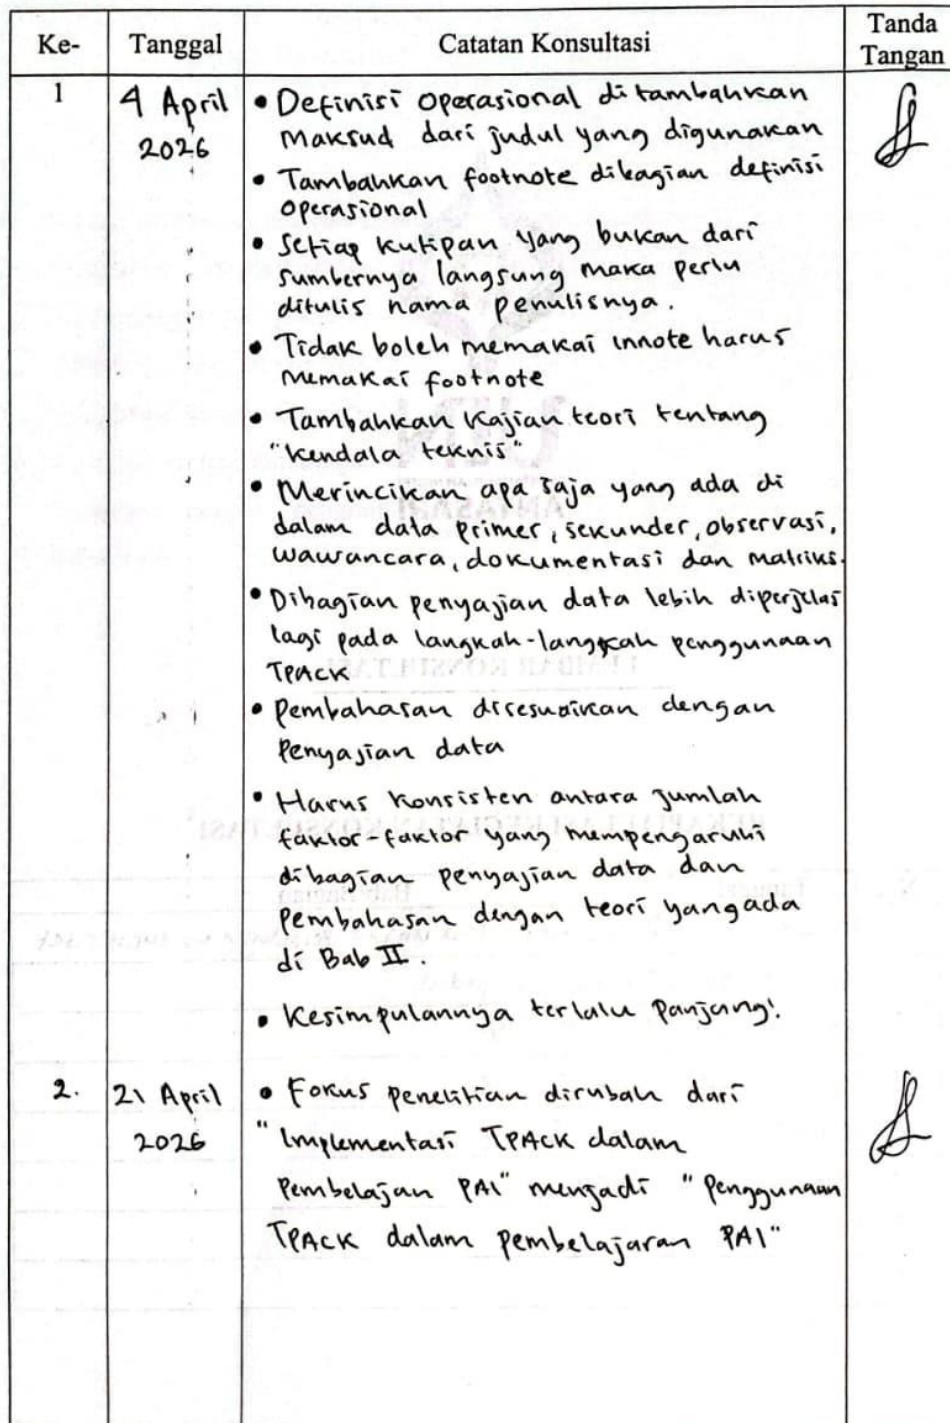 Ke- Tanggal Catatan Konsultasi Tanda Tangan
1 4 April 2026
• Definisi Operasional ditambahkan
Maksud dari judul yang digunakan
• Tambahkan footnote dibagian definisi
Operasional
• Setiap kutipan yang bukan dari
sumbernya langsung maka perlu
ditulis nama penulisnya.
• Tidak boleh memakai innote harus
memakai footnote
• Tambahkan Kajian teori tentang
"kendala teknis"
• Merincikan apa saja yang ada di
dalam data primer, sekunder, observasi,
wawancara, dokumentasi dan matriks.
• Dibagian penyajian data lebih diperjelas
lagi pada langkah-langkah penggunaan
TPACK
• Pembahasan disesuaikan dengan
Penyajian data
• Harus konsisten antara jumlah
faktor-faktor yang mempengaruhi
dibagian penyajian data dan
Pembahasan dengan teori yang ada
di Bab II.
• Kesimpulannya terlalu Panjang!
2. 21 April 2026
• Fokus penelitian dirubah dari
"Implementasi TPACK dalam
Pembelajan PAI" menjadi "Penggunaan
TPACK dalam pembelajaran PAI"